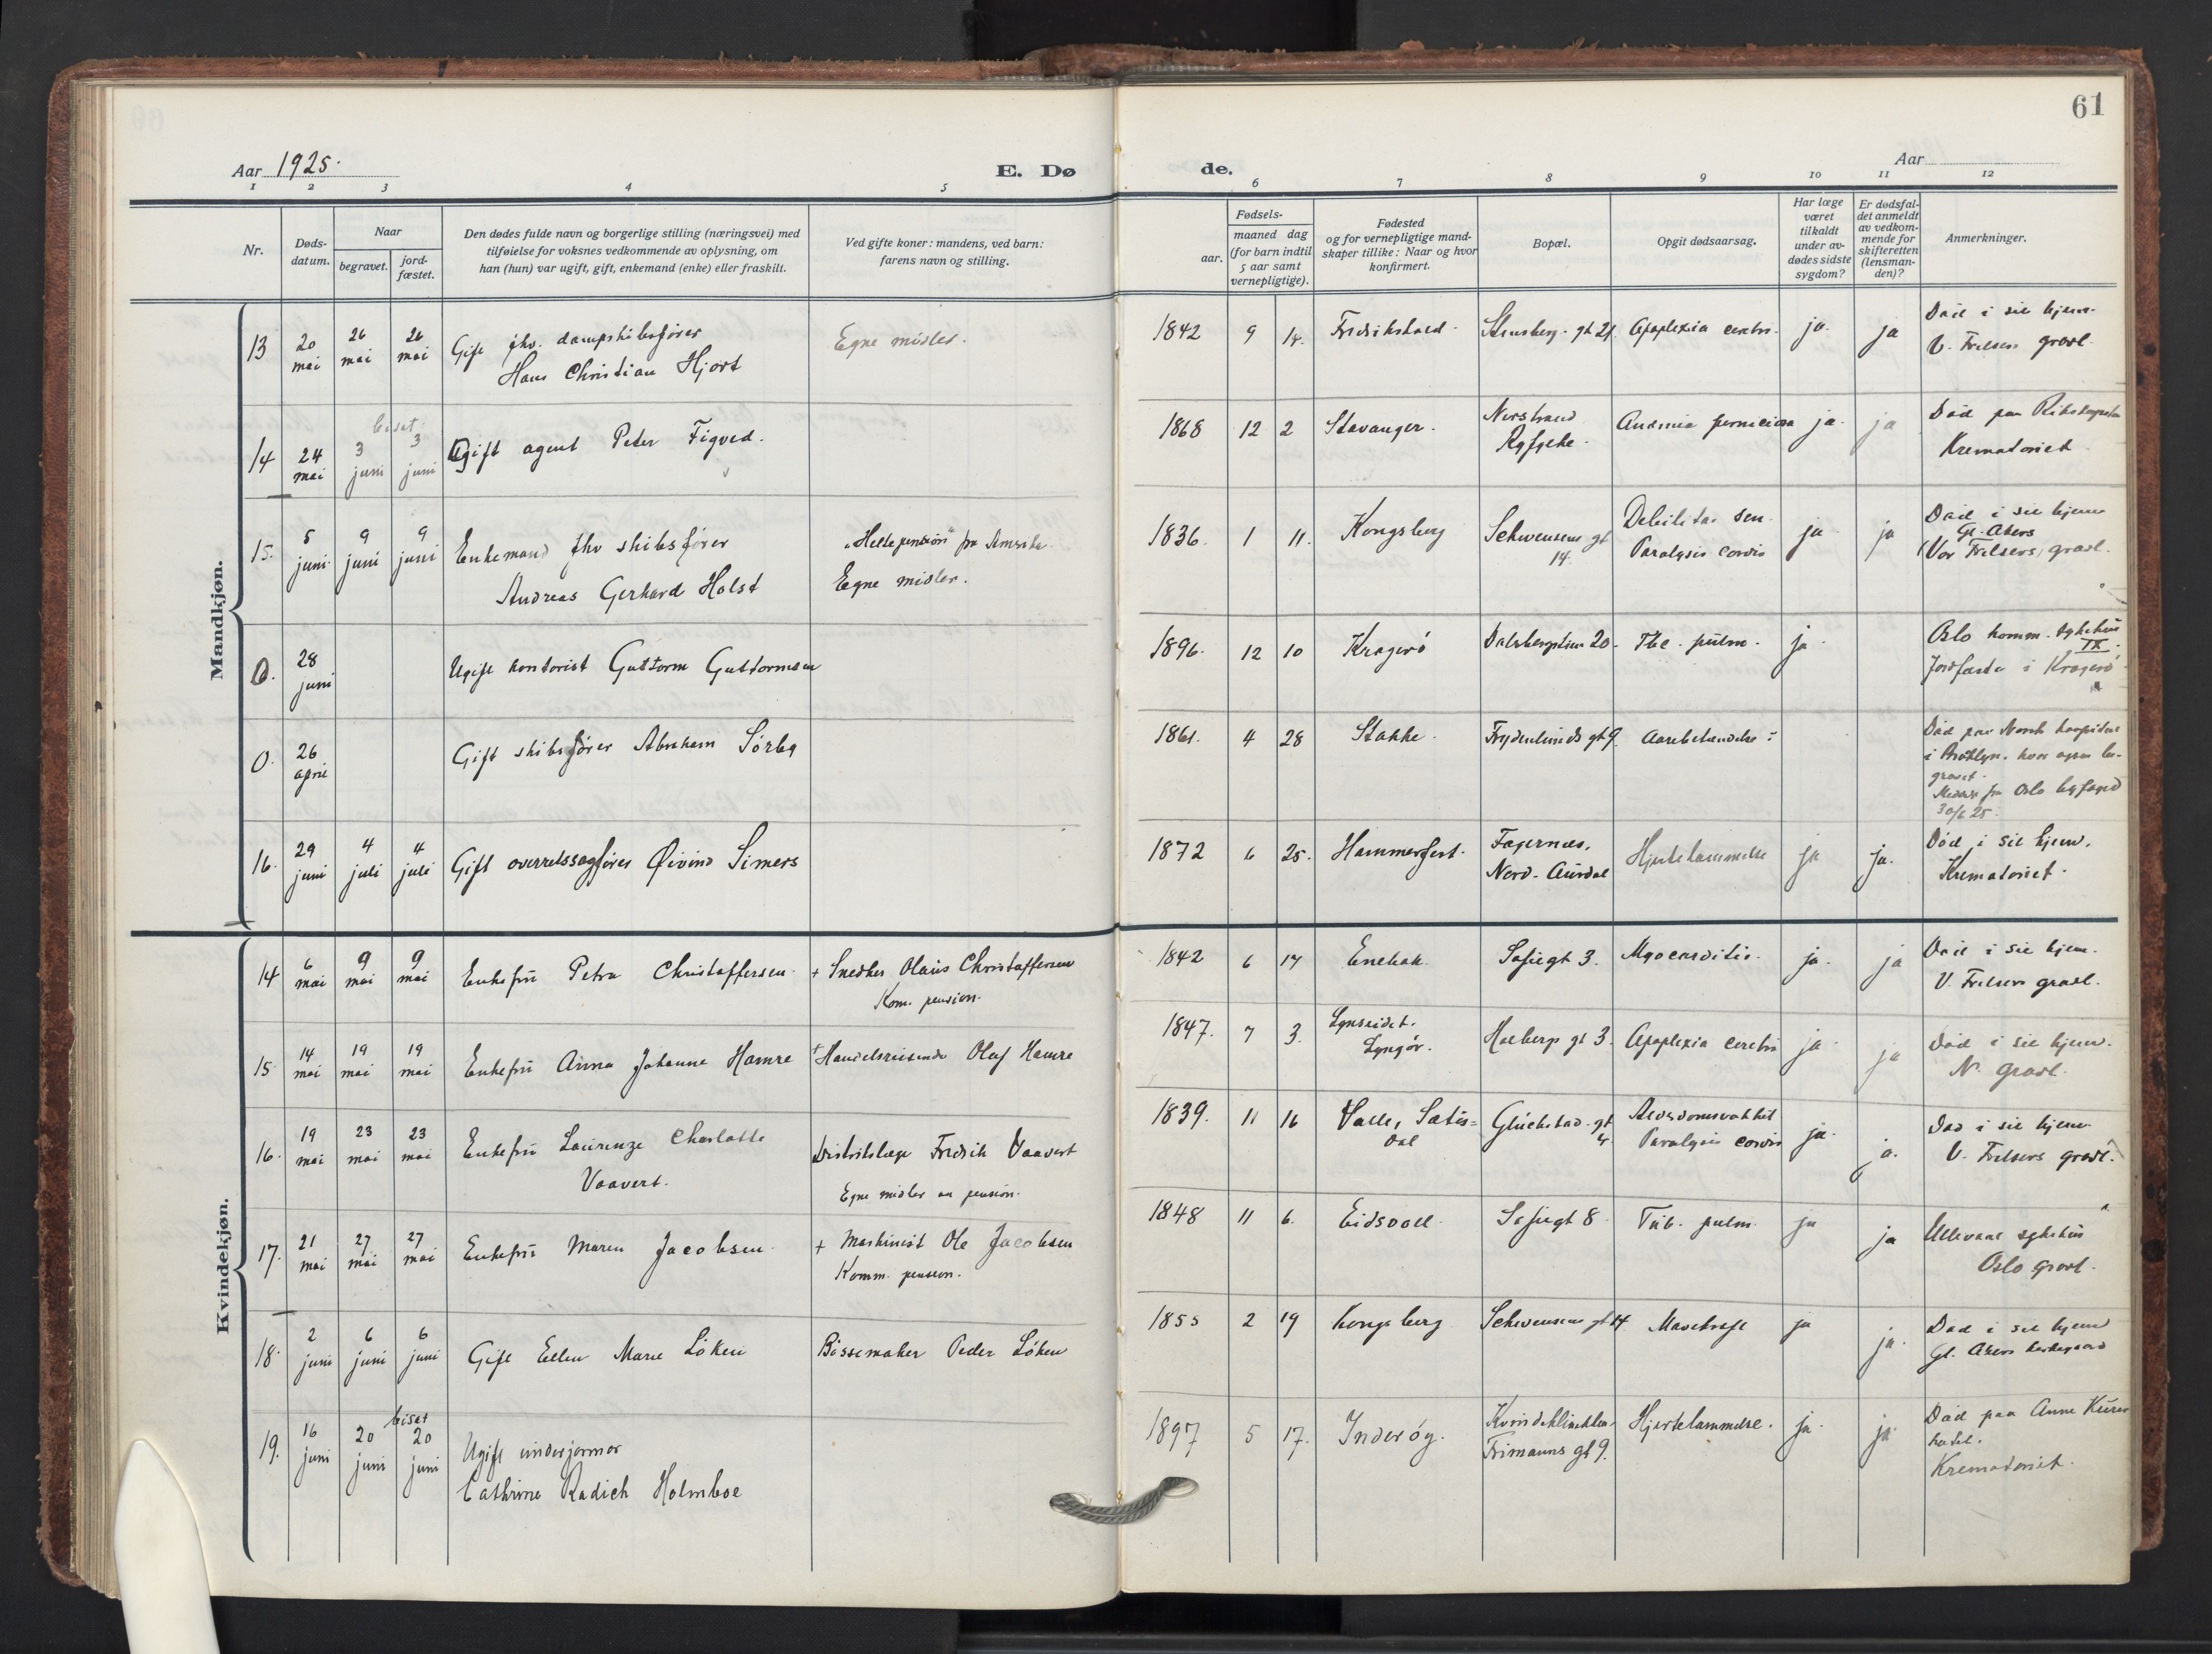 61
Aar 1925.
E. Dø
de.
Aar
1 2 3 4 5 6 7 8 9 10 11 12
Nr.
Døds-
datum.
Naar
begravet.
jord-
fæstet.
Den dødes fulde navn og borgerlige stilling (næringsvei) med
tilføielse for voksnes vedkommende av oplysning, om
han (hun) var ugift, gift, enkemand (enke) eller fraskilt.
Ved gifte koner: mandens, ved barn:
farens navn og stilling.
Fødsels-
aar.
maaned dag
(for barn indtil
5 aar samt
vernepligtige).
Fødested
og for vernepligtige mand-
skaper tillike: Naar og hvor
konfirmert.
Bopæl.
Opgit dødsaarsag.
Har læge
været
tilkaldt
under av-
dødes sidste
sygdom?
Er dødsfal-
det anmeldt
av vedkom-
mende for
skifteretten
(lensman-
den)?
Anmerkninger.
Mandkjøn.
13
20 mai
26 mai
26 mai
Gift fhv. dampskibsfører
Hans Christian Hjort
Egne midler.
1842 9 14.
Fredrikstad.
Stensberg. gt 21.
Apoplexia cerebri.
ja. ja
Död i sit hjem.
V. Frelsers gravl.
14
24 mai
biset
3 juni
3 juni
Gift agent Peter Figved.
1868 12 2
Stavanger.
Nerstrand
Ryfylke.
Anæmia perniciosa
ja. ja
Död paa Rikshospitalet
Krematoriet
15.
5 juni
9 juni
9 juni
Enkemand fhv skibsfører
Andreas Gerhard Holst
"Heltepension" fra Amerika.
Egne midler.
1836. 1 11.
Kongsberg
Schwensens gt
14.
Debilitas sen.
Paralysis cordis
ja ja
Död i sit hjem
Gl. Akers
(Vor Frelsers) gravl.
0.
28 juni
Ugift kontorist Guttorm Guttormsen
1896. 12 10
Kragerö
Dalsbergstien 20.
Tbc. pulm.
ja.
Oslo komm. sykehus
IX.
Jordfæstet i Kragerö
0.
26 april
Gift skibsfører Abraham Sörby
1861. 4 28
Stokke.
Frydenlunds gt 9.
Aarebetændelse
Död paa Norsk hospital
i Brooklyn. hvor ogsaa be-
gravet.
Meddelt fra Oslo byfoged
30/6 25.
16.
29 juni
4 juli
4 juli
Gift overretssagfører Øivind Simers
1872 6 25.
Hammerfest.
Fagernes,
Nord-Aurdal
Hjertelammelse
ja ja.
Död i sit hjem.
Krematoriet.
Kvindekjøn.
14
6 mai
9 mai
9 mai
Enkefru Petra Christoffersen.
+ Snedker Olaus Christoffersen
Kom. pension.
1842 6 17
Enebak.
Sofiegt 3.
Myocarditis.
ja. ja
Död i sit hjem.
V. Frelsers gravl.
15
14 mai
19 mai
19 mai
Enkefru Anna Johanne Hamre
+ Handelsreisende Olaf Hamre
1847. 7 3.
Lyngör.
Holbergs gt 3.
Apoplexia cerebri
ja. ja
Död i sit hjem.
N. gravl.
16.
19 mai
23 mai
23 mai
Enkefru Laurenze Charlotte
Vaavert.
Distriktslæge Fredrik Vaavert
Egne midler og pension.
1839. 11 16
Valle, Sætes=
dal
Glückstad. gt
4.
Alderdomssvakhet
Paralysis cordis
ja. ja.
Död i sit hjem
V. Frelsers gravl.
17.
21 mai
27 mai
27 mai
Enkefru Maren Jacobsen.
+ Maskinist Ole Jacobsen
Komm. pension.
1848 11 6.
Eidsvoll.
Sofiegt 8
Tub. pulm.
ja ja
Ullevaal sykehus
Oslo gravl.
18.
2 juni
6 juni
6 juni
Gift Ellen Marie Löken
Bössemaker Peder Löken
1855 2 19
Kongsberg
Schwensens gt 14
Mavekræft
ja ja.
Död i sit hjem
Gl. Akers kirkegaard
19.
16 juni
20 juni
biset
20 juni
Ugift underjormor
Cathrine Radich Holmboe
1897 5 17.
Inderöy.
Kvindeklinikken
Frimanns gt 9.
Hjertelammelse.
ja. ja
Död paa Anne Kures
hotel.
Krematoriet.